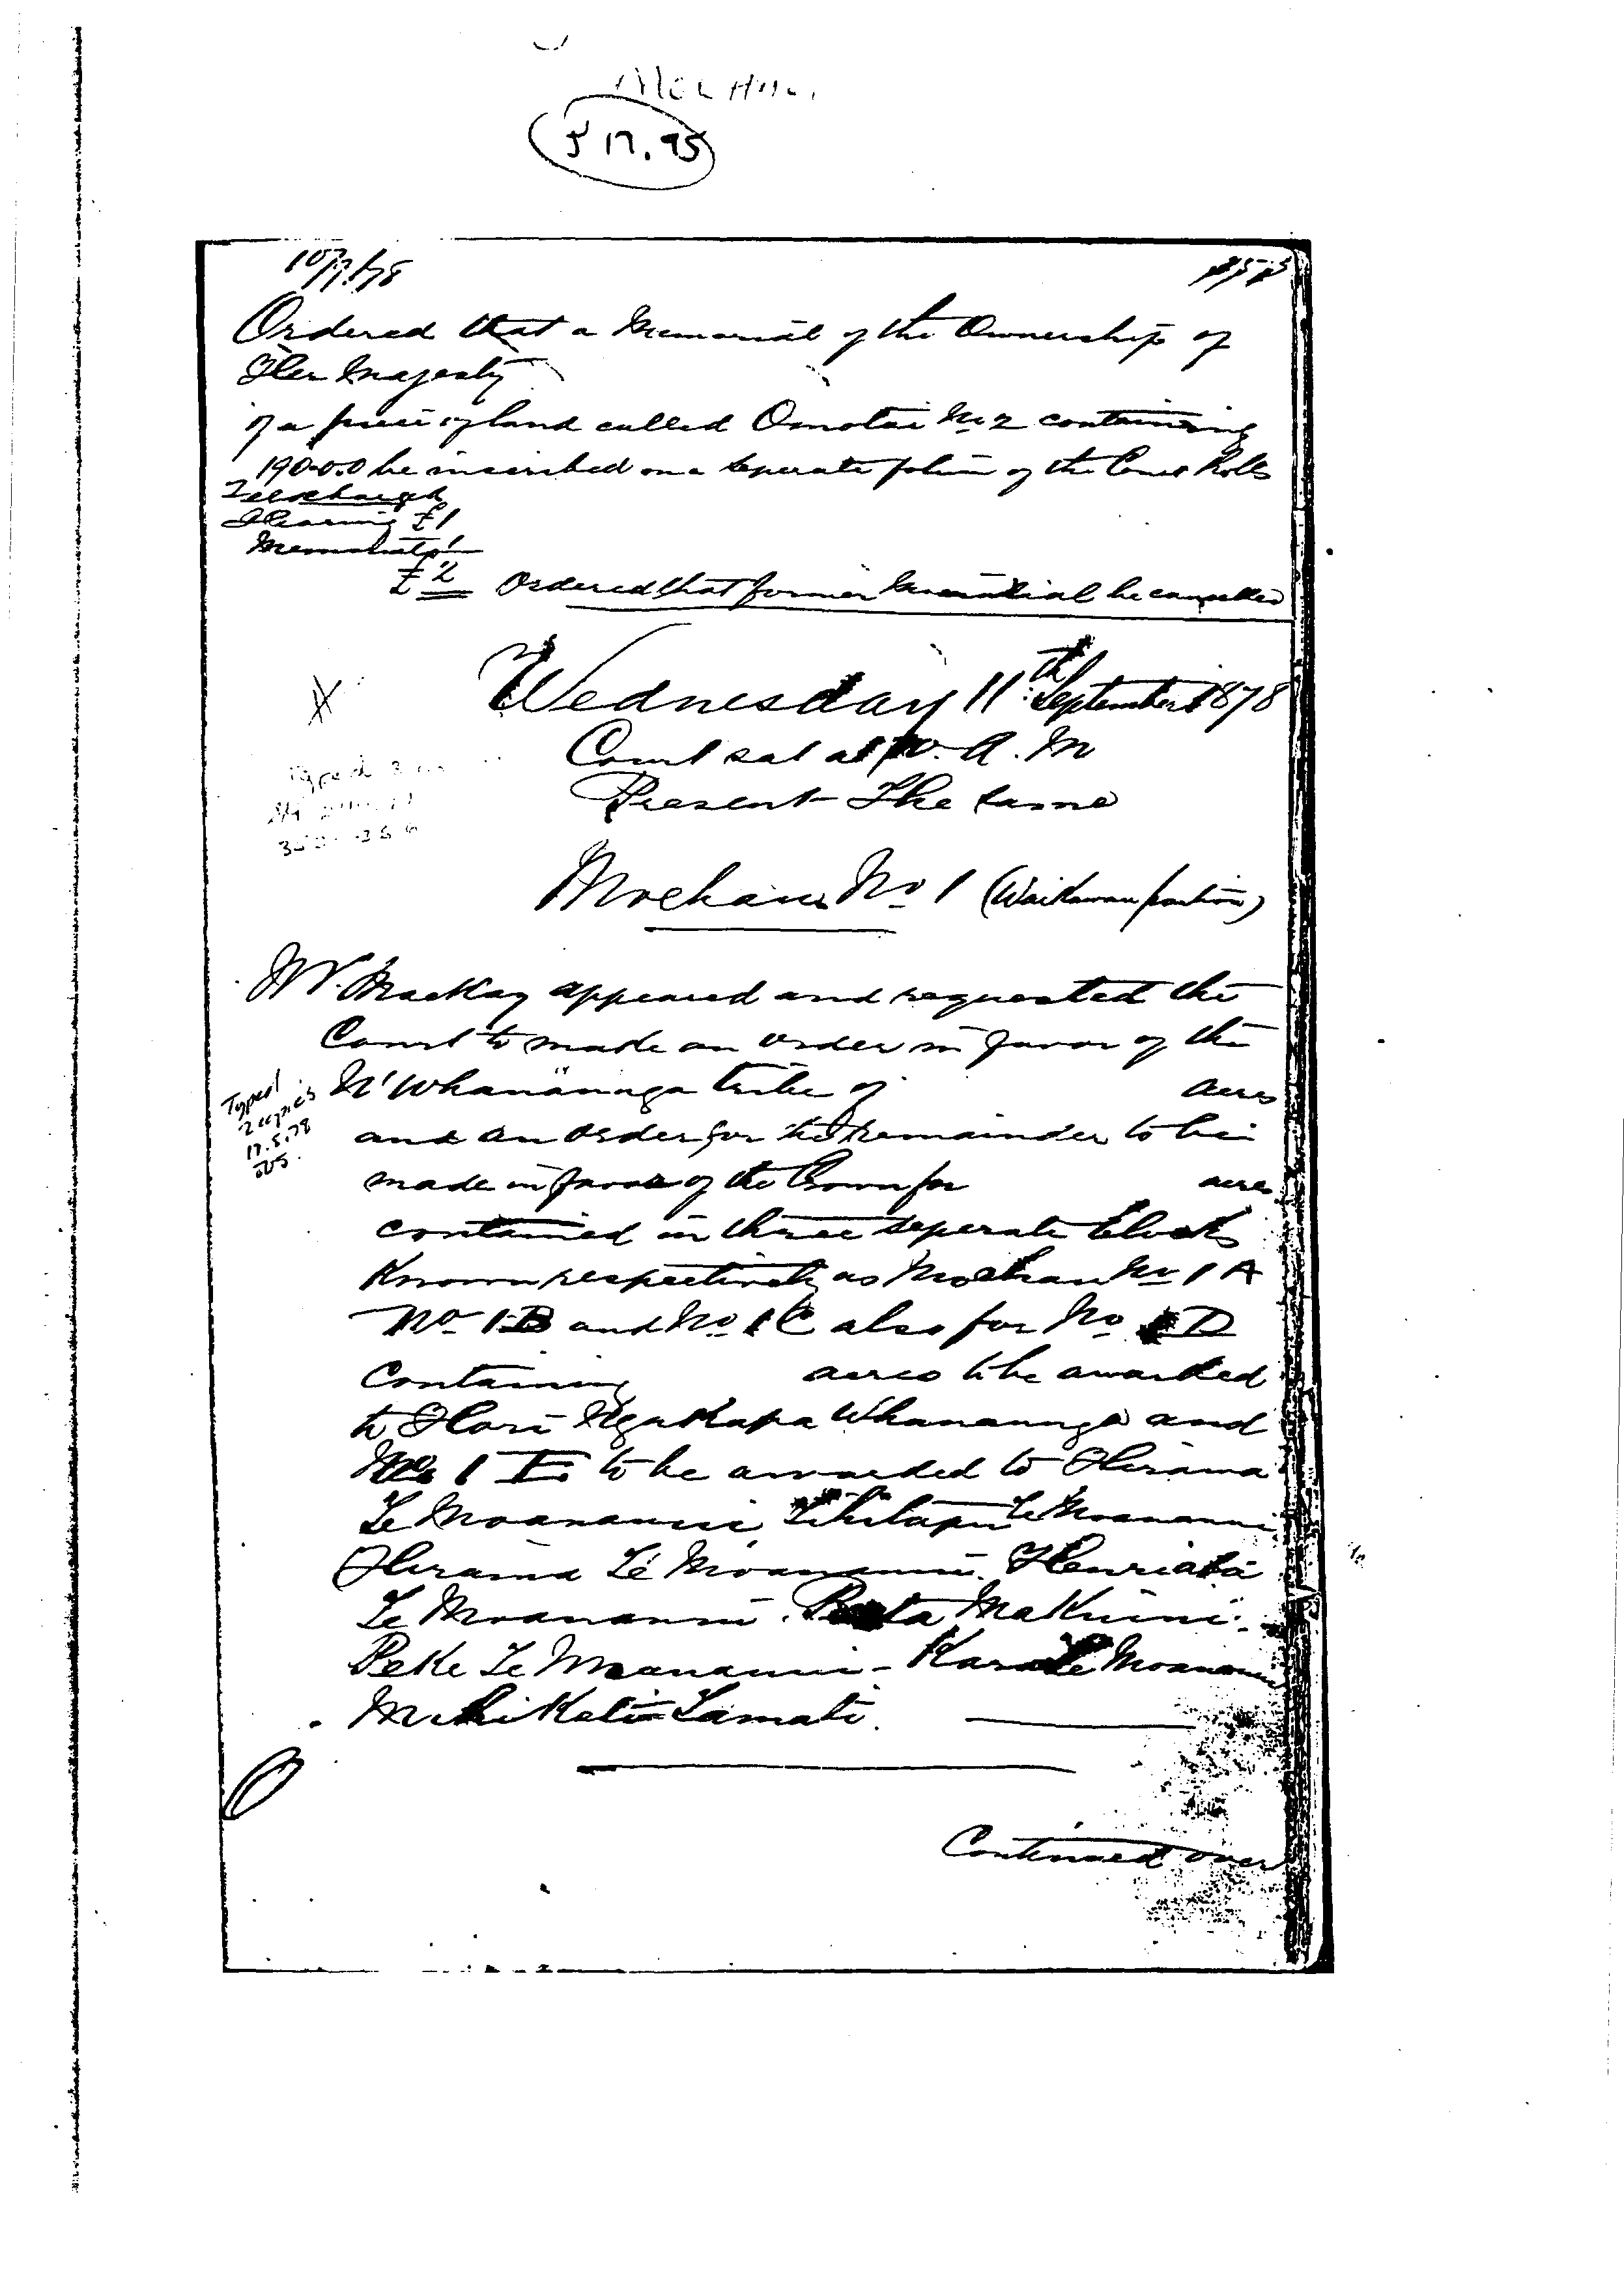 17.95
10/9/78
Ordered that a Memorial of the Ownership of
Her Majesty
of a piece of land called Omotai No 2 containing
190.0.0 be inscribed on a seperate folium of the Court Rolls
Hearing £1
Memorial 1
£2 Ordered that former Memorial be cancelled
Wednesday 11th September 1878
Court sat at 10. A. M
Present The same
Moehau No 1 (Waikawau portion)
Mr. Mackay appeared and requested the
Court to made an order in favor of the
N' Whanaunga tribe of acres
and an order for the remainder to be
made in favor of the Crown for acres
contained in three seperate blocks
Known respectively as Moehau No 1 A
No 1 B and No 1 C also for No 1 D
Containing acres to be awarded
to Hori Ngakapa Whanaunga and
No 1 E to be awarded to Hirama
Te Moananui Te Moananui
Hirama Te Moananui. Henriata
Te Moananui. Makiini.
Peke Te Moananui - Te Moananui
Tamati.
Typed
2 copies
17.5.78
Continued over